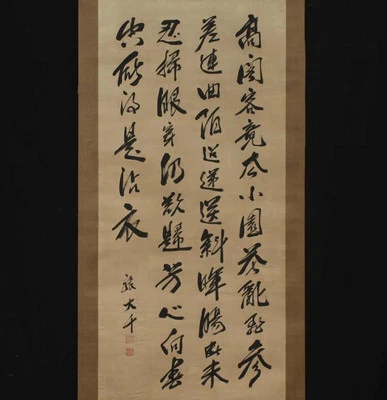 高閣客竟去小園花亂飛參
差連曲陌迢遞送斜暉腸斷未
忍掃眼穿仍欲歸芳心向春
盡所得是沾衣
張大千